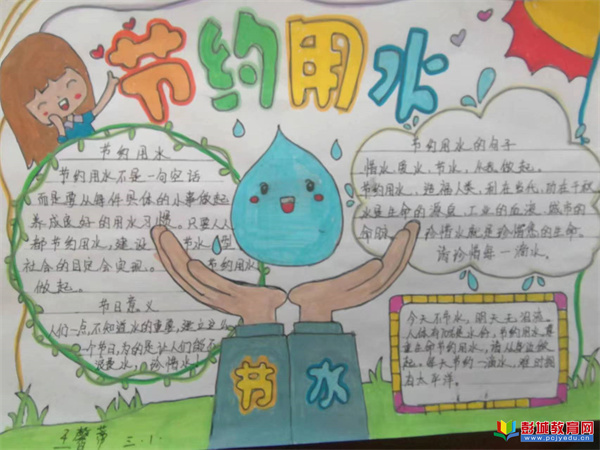 节约用水
节约用水
节约用水不是一句空话
而是要从每件具体的小事做起
养成良好的用水习惯。只要人人
都节约用水,建设 节水 型
社会的目定会实现。 节约用水
做起。
节日意义
人们一点,不知道水的重要,建立
一个节日,为的是让人们能不
浪费水,珍惜水
节约用水的句子
惜水、爱水、节水,从我做起。
节约用水、造福人类,利在当代,功在千秋
水是生命的源泉、工业的血液、城市的
命脉。 珍惜水就是珍惜您的生命。
请珍惜每一滴水。
今天不节水,明天无泪流。
人体有 是水份,节约用水尊
重生命节约用水,请从身边做
起。每天节约一滴水,难动
为太平洋。
节 水
王 三.1.
彭城教育网
www.pcjyedu.cn